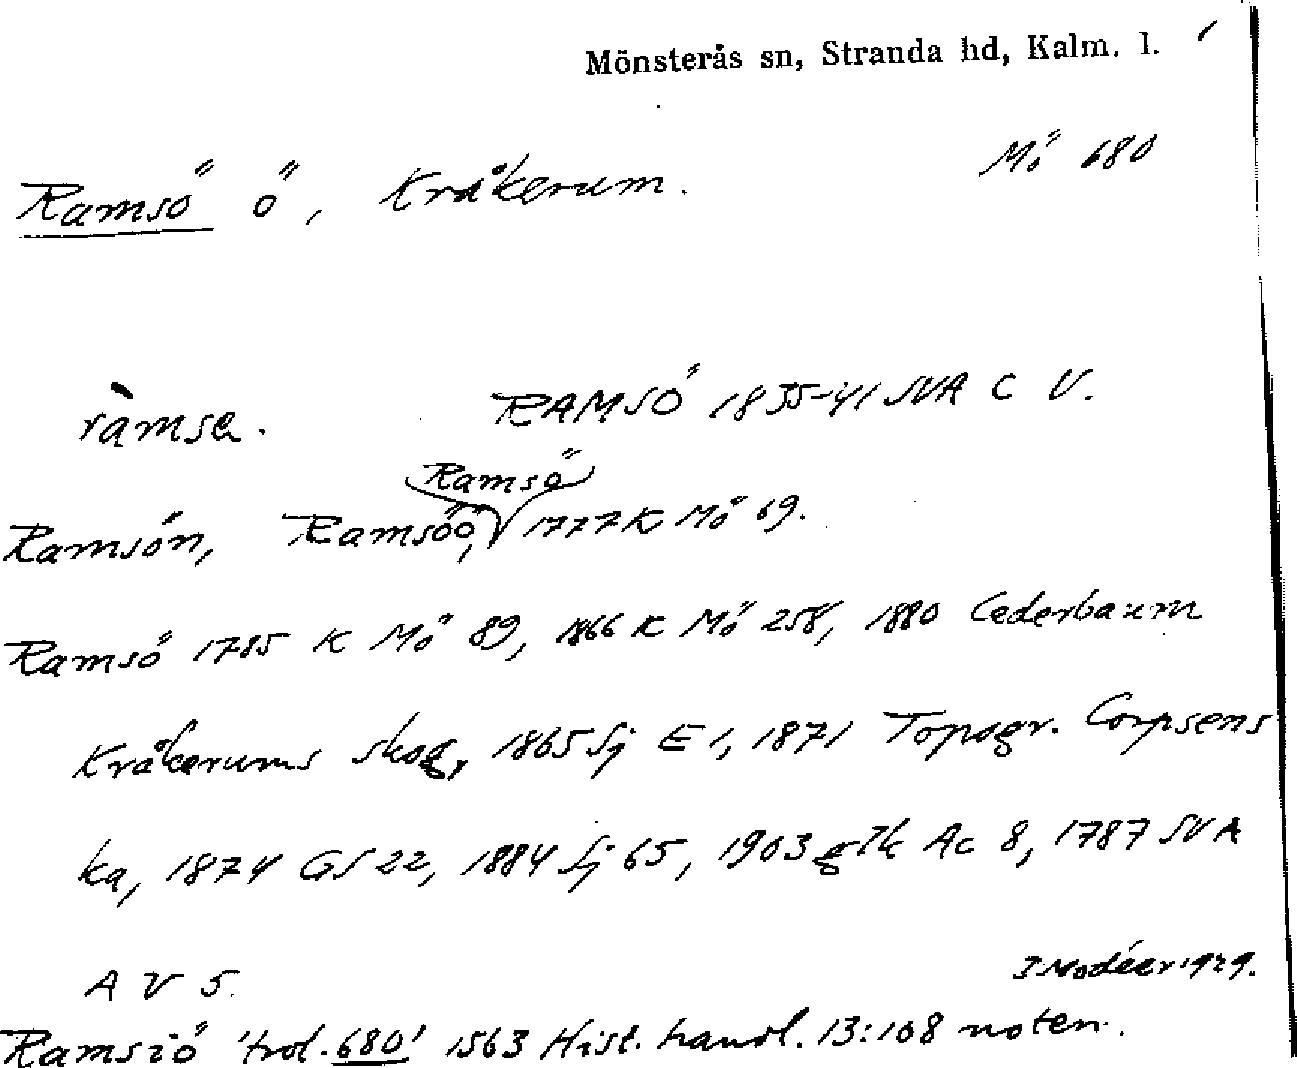 Mönsterås sn, Stranda hd, Kalm. l.
Mö 680
Ramsö ö, Kråkerum.
ràmsa. RAMSÖ 1835-41 SVA C V.
Ramsö
Ramsön, Ramsöö, 1777 K Mö 69.
Ramsö 1785 K Mö 89, 1866 K Mö 258, 1880 Cederbaum
Kråkerums skog, 1865 Sj E 1, 1871 Topogr. Corpsens
ka, 1874 GS 22, 1884 Sj 65, 1903 glk Ac 8, 1787 SVA
A V 5.
I Modéer 1929.
Ramsiö 'trol. 680' 1563 Hist. handl. 13:108 noten.